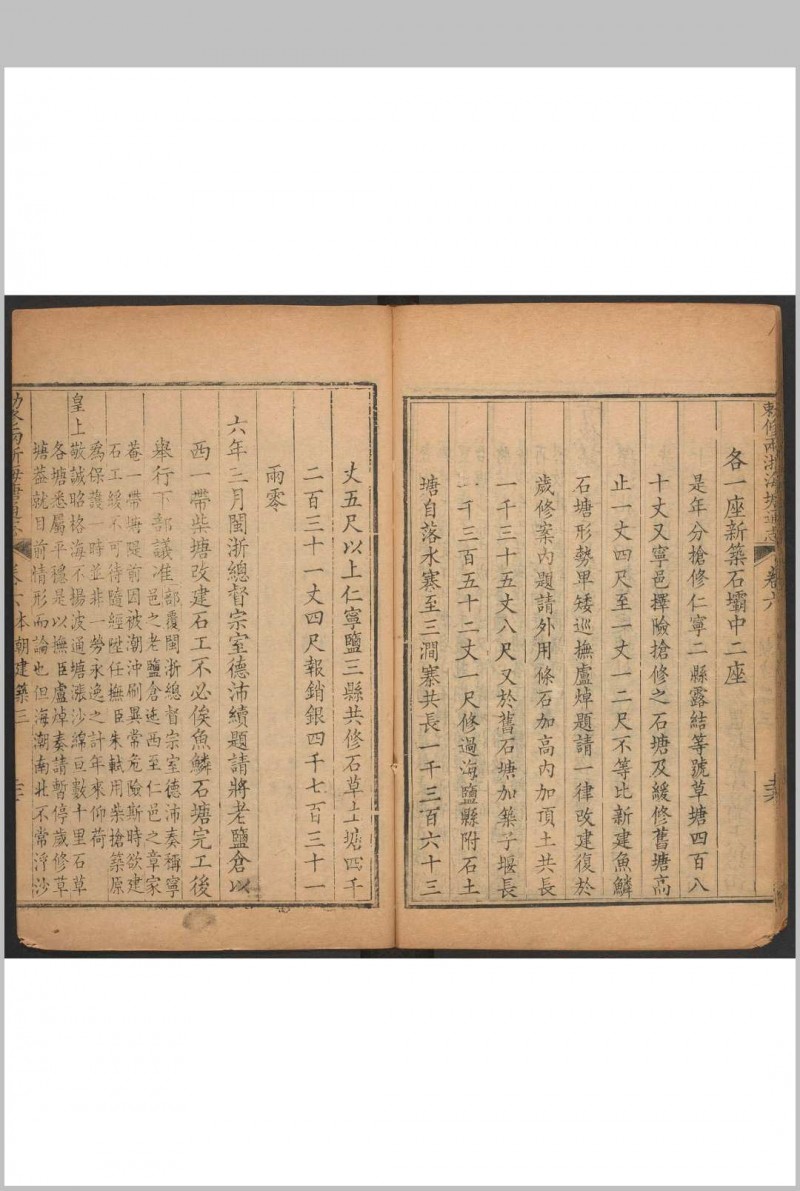 敕修兩浙海塘通志
卷六
各一座新築石壩中二座
是年分搶修仁寧二縣露結等號草塘四百八
十丈又寧邑擇險搶修之石塘及緩修舊塘高
止一丈四尺至一丈一二尺不等比新建魚鱗
石塘形勢卑矮巡撫盧焯題請一律改建復於
歲修案內題請外用條石加高內加頂土共長
一千三十五丈八尺又於舊石塘加築子堰長
一千三百五十二丈一尺修過海鹽縣附石土
塘自落水寨至三澗寨共長一千三百六十三
丈五尺以上仁寧鹽三縣共修石草土塘四千
二百三十一丈四尺報銷銀四千七百三十一
兩零
六年三月閩浙總督宗室德沛續題請將老鹽倉以
西一帶柴塘改建石工不必俟魚鱗石塘完工後
舉行下部議准部覆閩浙總督宗室德沛奏稱寧
邑之老鹽倉迤西至仁邑之章家
菴一帶塘堤前因被潮沖刷異常危險斯時欲建
石工緩不可待隨經陞任撫臣朱軾用柴搶築原
為保護一時並非一勞永逸之計年來仰荷
皇上敬誠昭格海不揚波通塘漲沙綿亘數十里石草
各塘悉屬平穩是以撫臣盧焯奏請暫停歲修草
塘葢就目前情形而論也但海潮南北不常浮沙
卷六本朝建築三